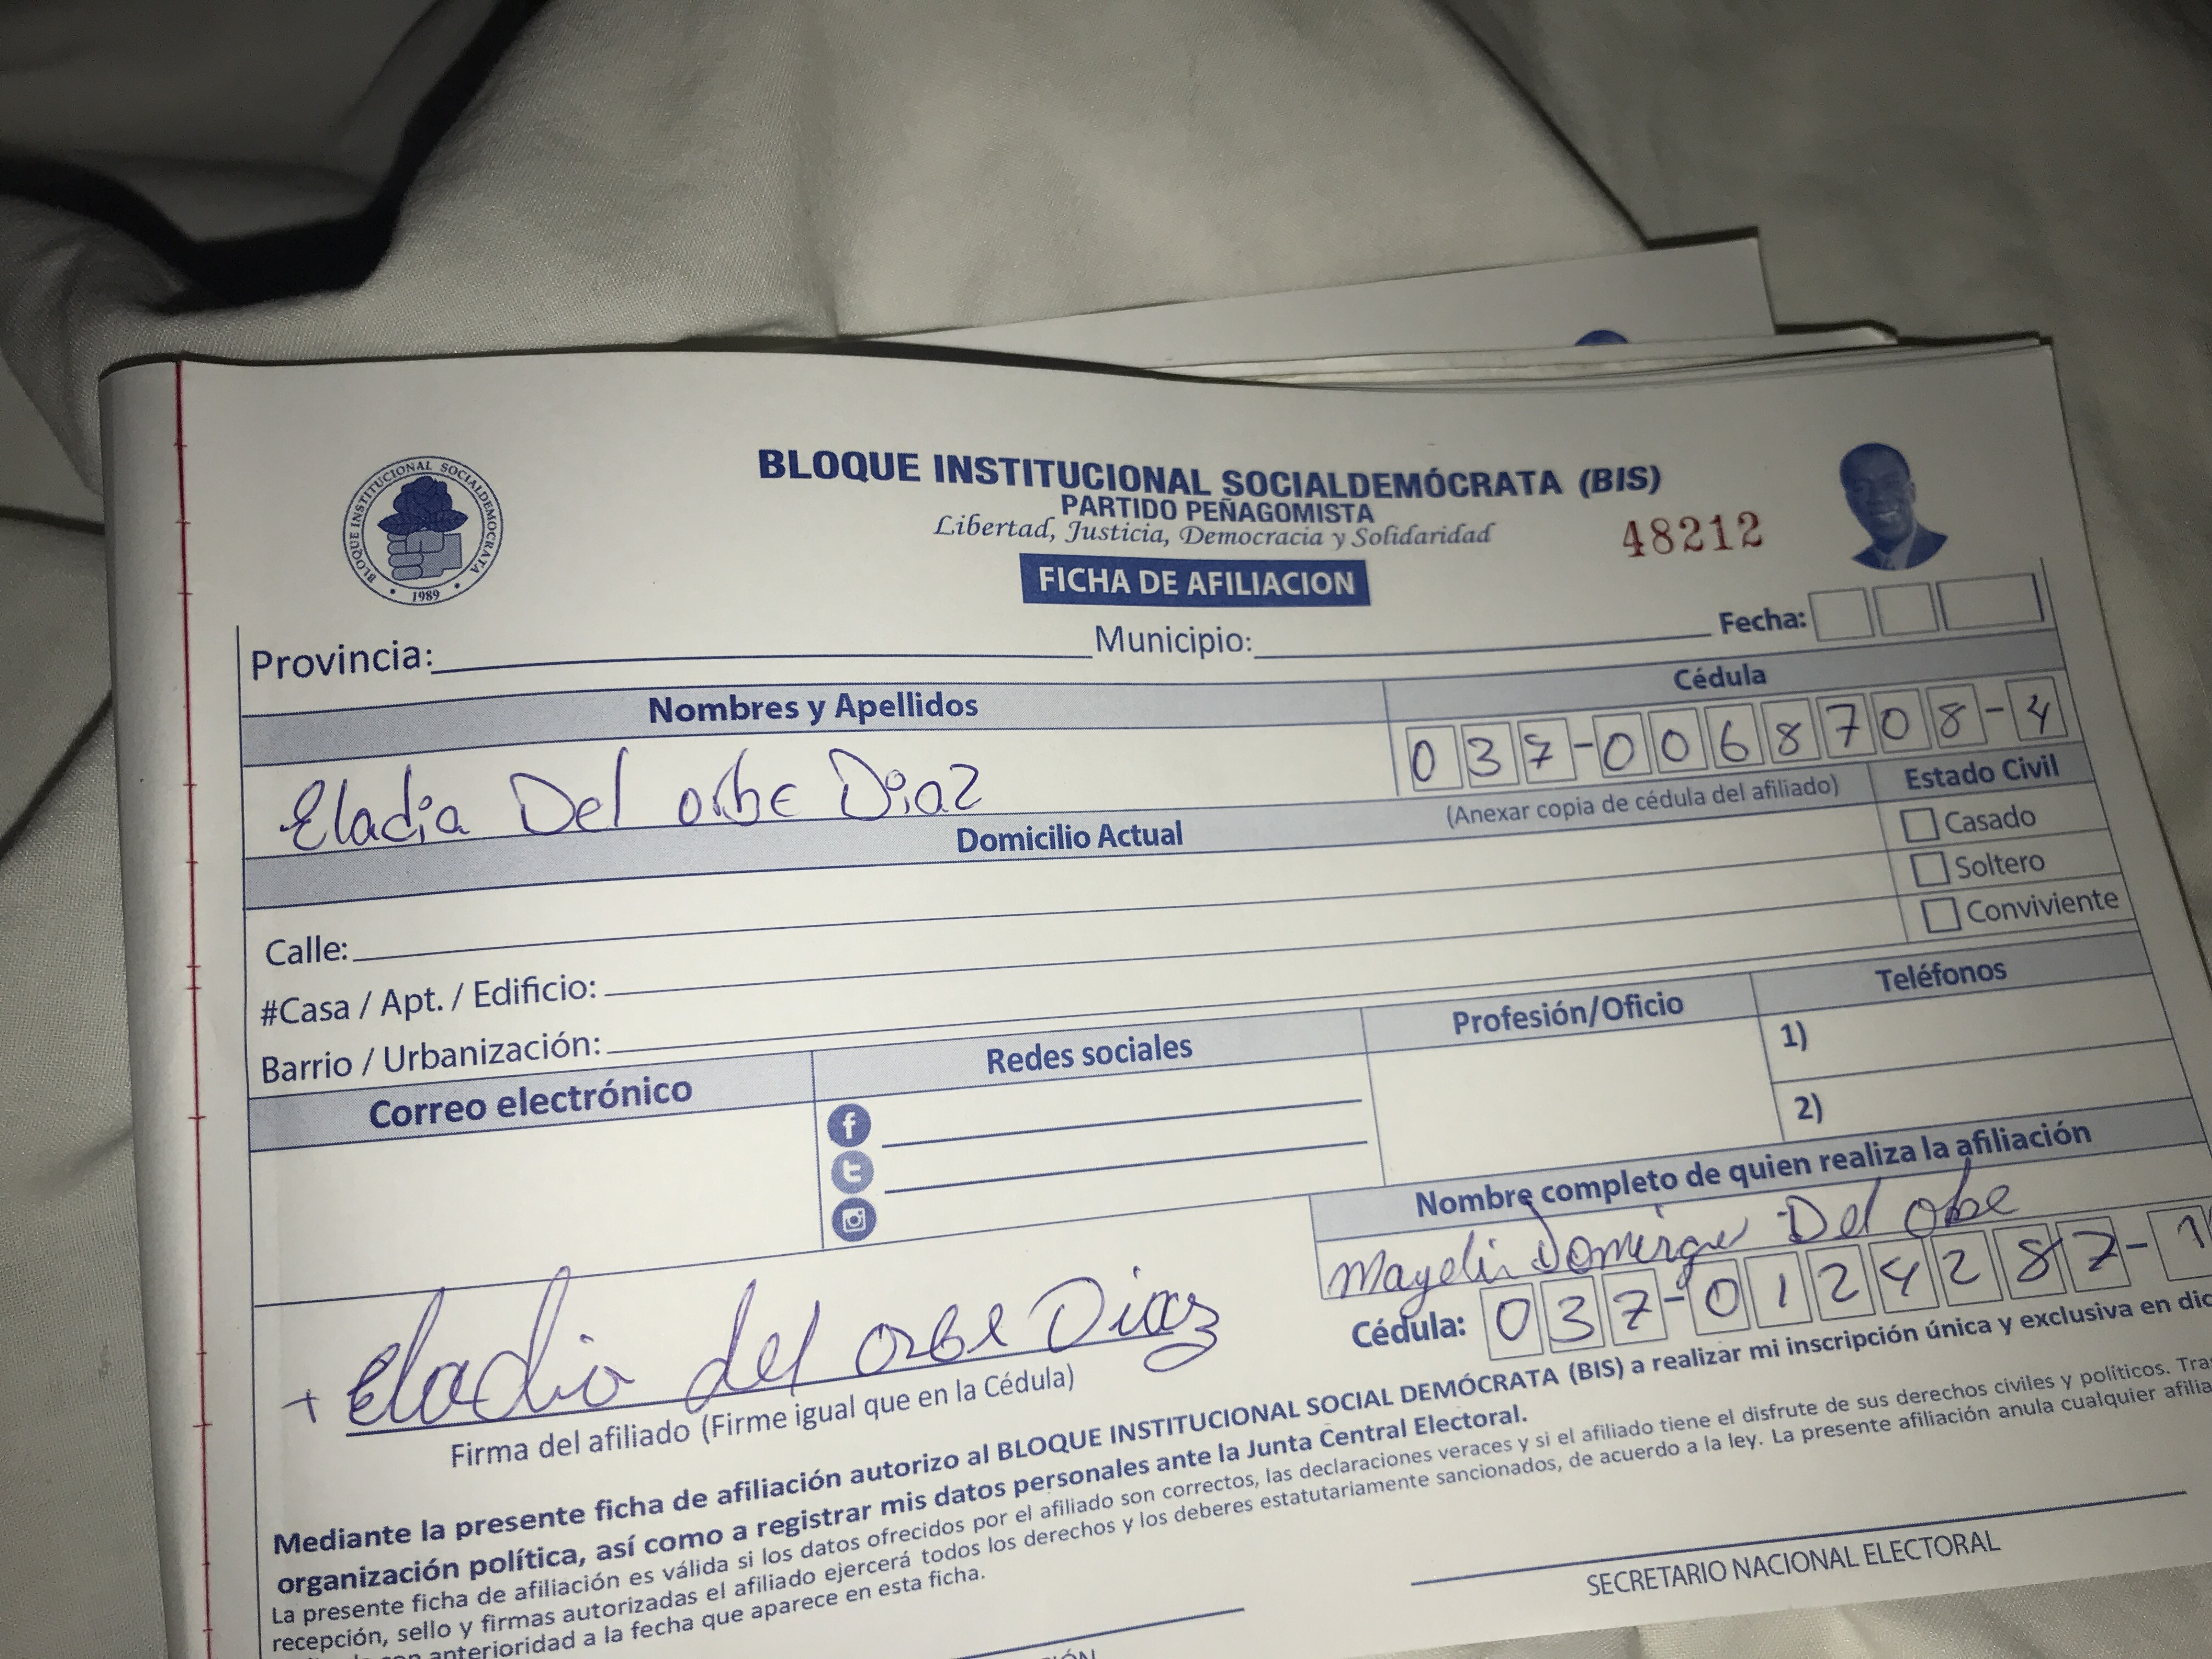 BLOQUE INSTITUCIONAL SOCIALDEMÓCRATA
1989
BLOQUE INSTITUCIONAL SOCIALDEMÓCRATA (BIS)
PARTIDO PEÑAGOMISTA
Libertad, Justicia, Democracia y Solidaridad
48212
FICHA DE AFILIACION
Provincia: Municipio: Fecha:
Nombres y Apellidos Cédula
Eladia Del orbe Diaz 037-0068708-4
(Anexar copia de cédula del afiliado)
Domicilio Actual Estado Civil
Casado
Soltero
Conviviente
Calle:
#Casa / Apt. / Edificio:
Barrio / Urbanización:
Correo electrónico Redes sociales Profesión/Oficio Teléfonos
1)
2)
Nombre completo de quien realiza la afiliación
Mayelin Del orbe
Cédula: 037-0124287-1
+ Eladio del orbe Diaz
Firma del afiliado (Firme igual que en la Cédula)
Mediante la presente ficha de afiliación autorizo al BLOQUE INSTITUCIONAL SOCIAL DEMÓCRATA (BIS) a realizar mi inscripción única y exclusiva en dic
organización política, así como a registrar mis datos personales ante la Junta Central Electoral.
La presente ficha de afiliación es válida si los datos ofrecidos por el afiliado son correctos, las declaraciones veraces y si el afiliado tiene el disfrute de sus derechos civiles y políticos. Tra
recepción, sello y firmas autorizadas el afiliado ejercerá todos los derechos y los deberes estatutariamente sancionados, de acuerdo a la ley. La presente afiliación anula cualquier afilia
con anterioridad a la fecha que aparece en esta ficha.
SECRETARIO NACIONAL ELECTORAL